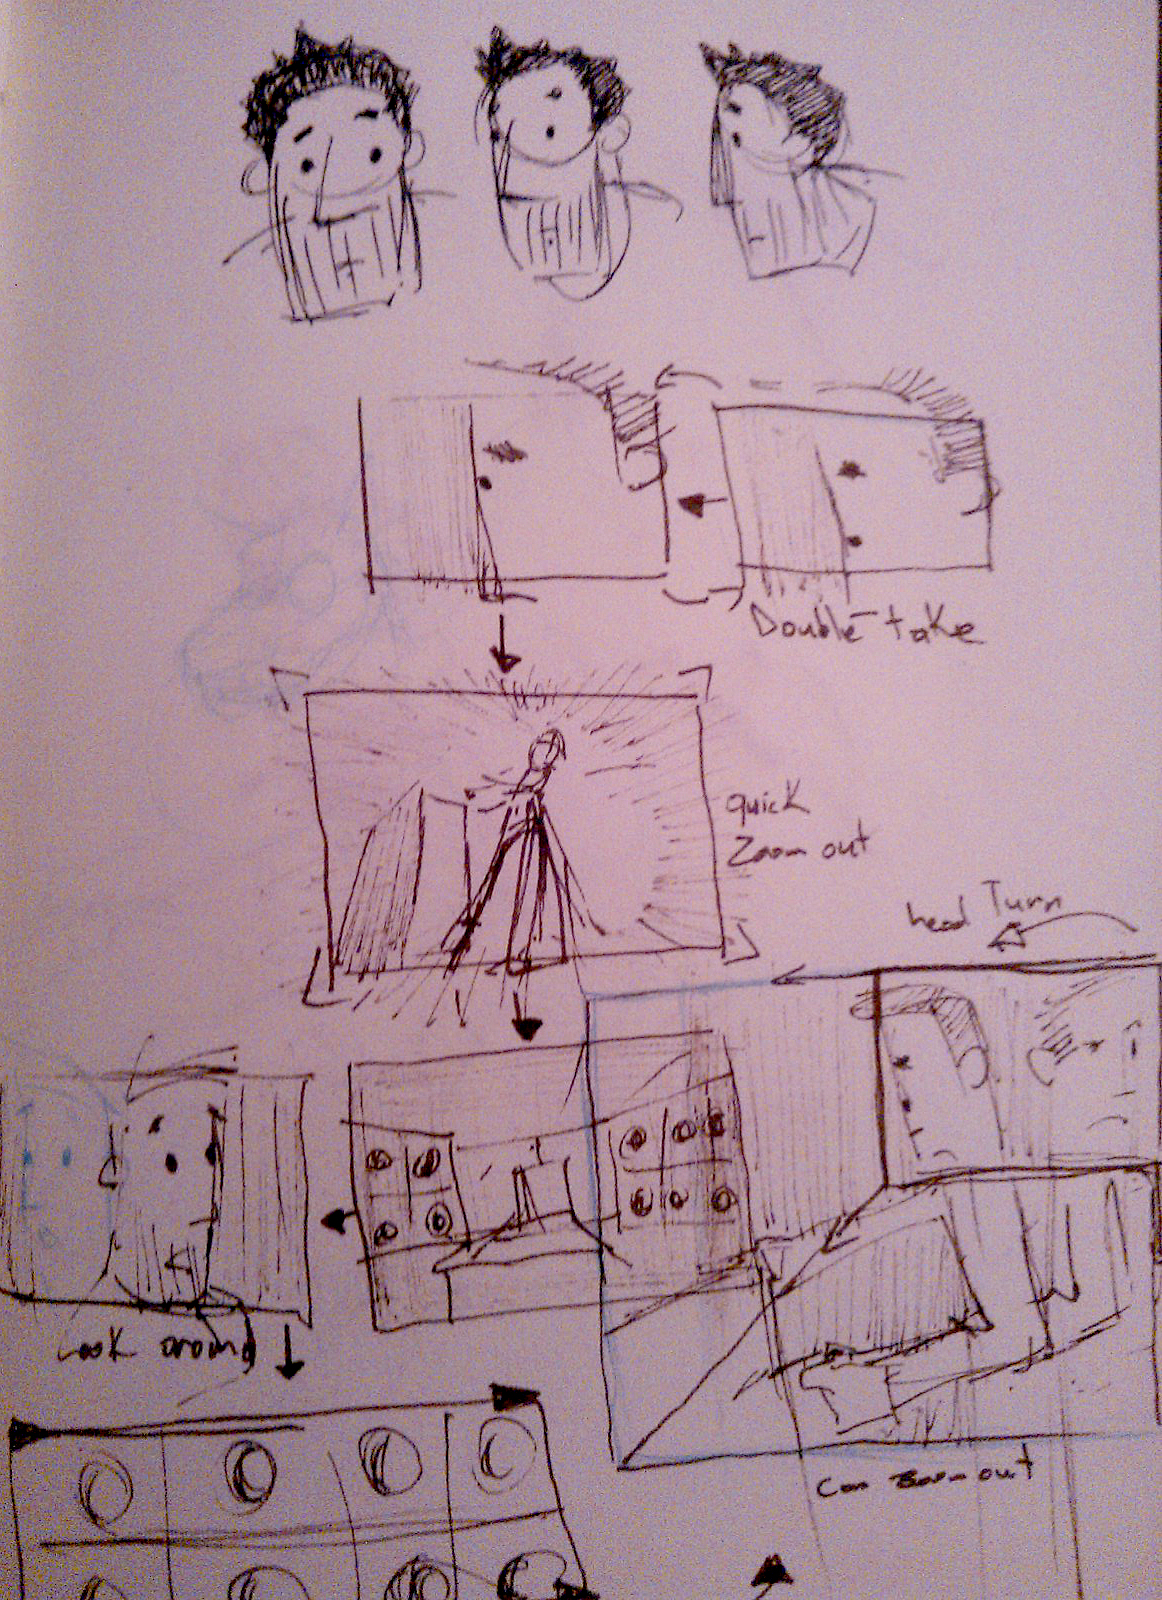 Double take
quick
Zoom out
head Turn
Look around
Cam Zoom out